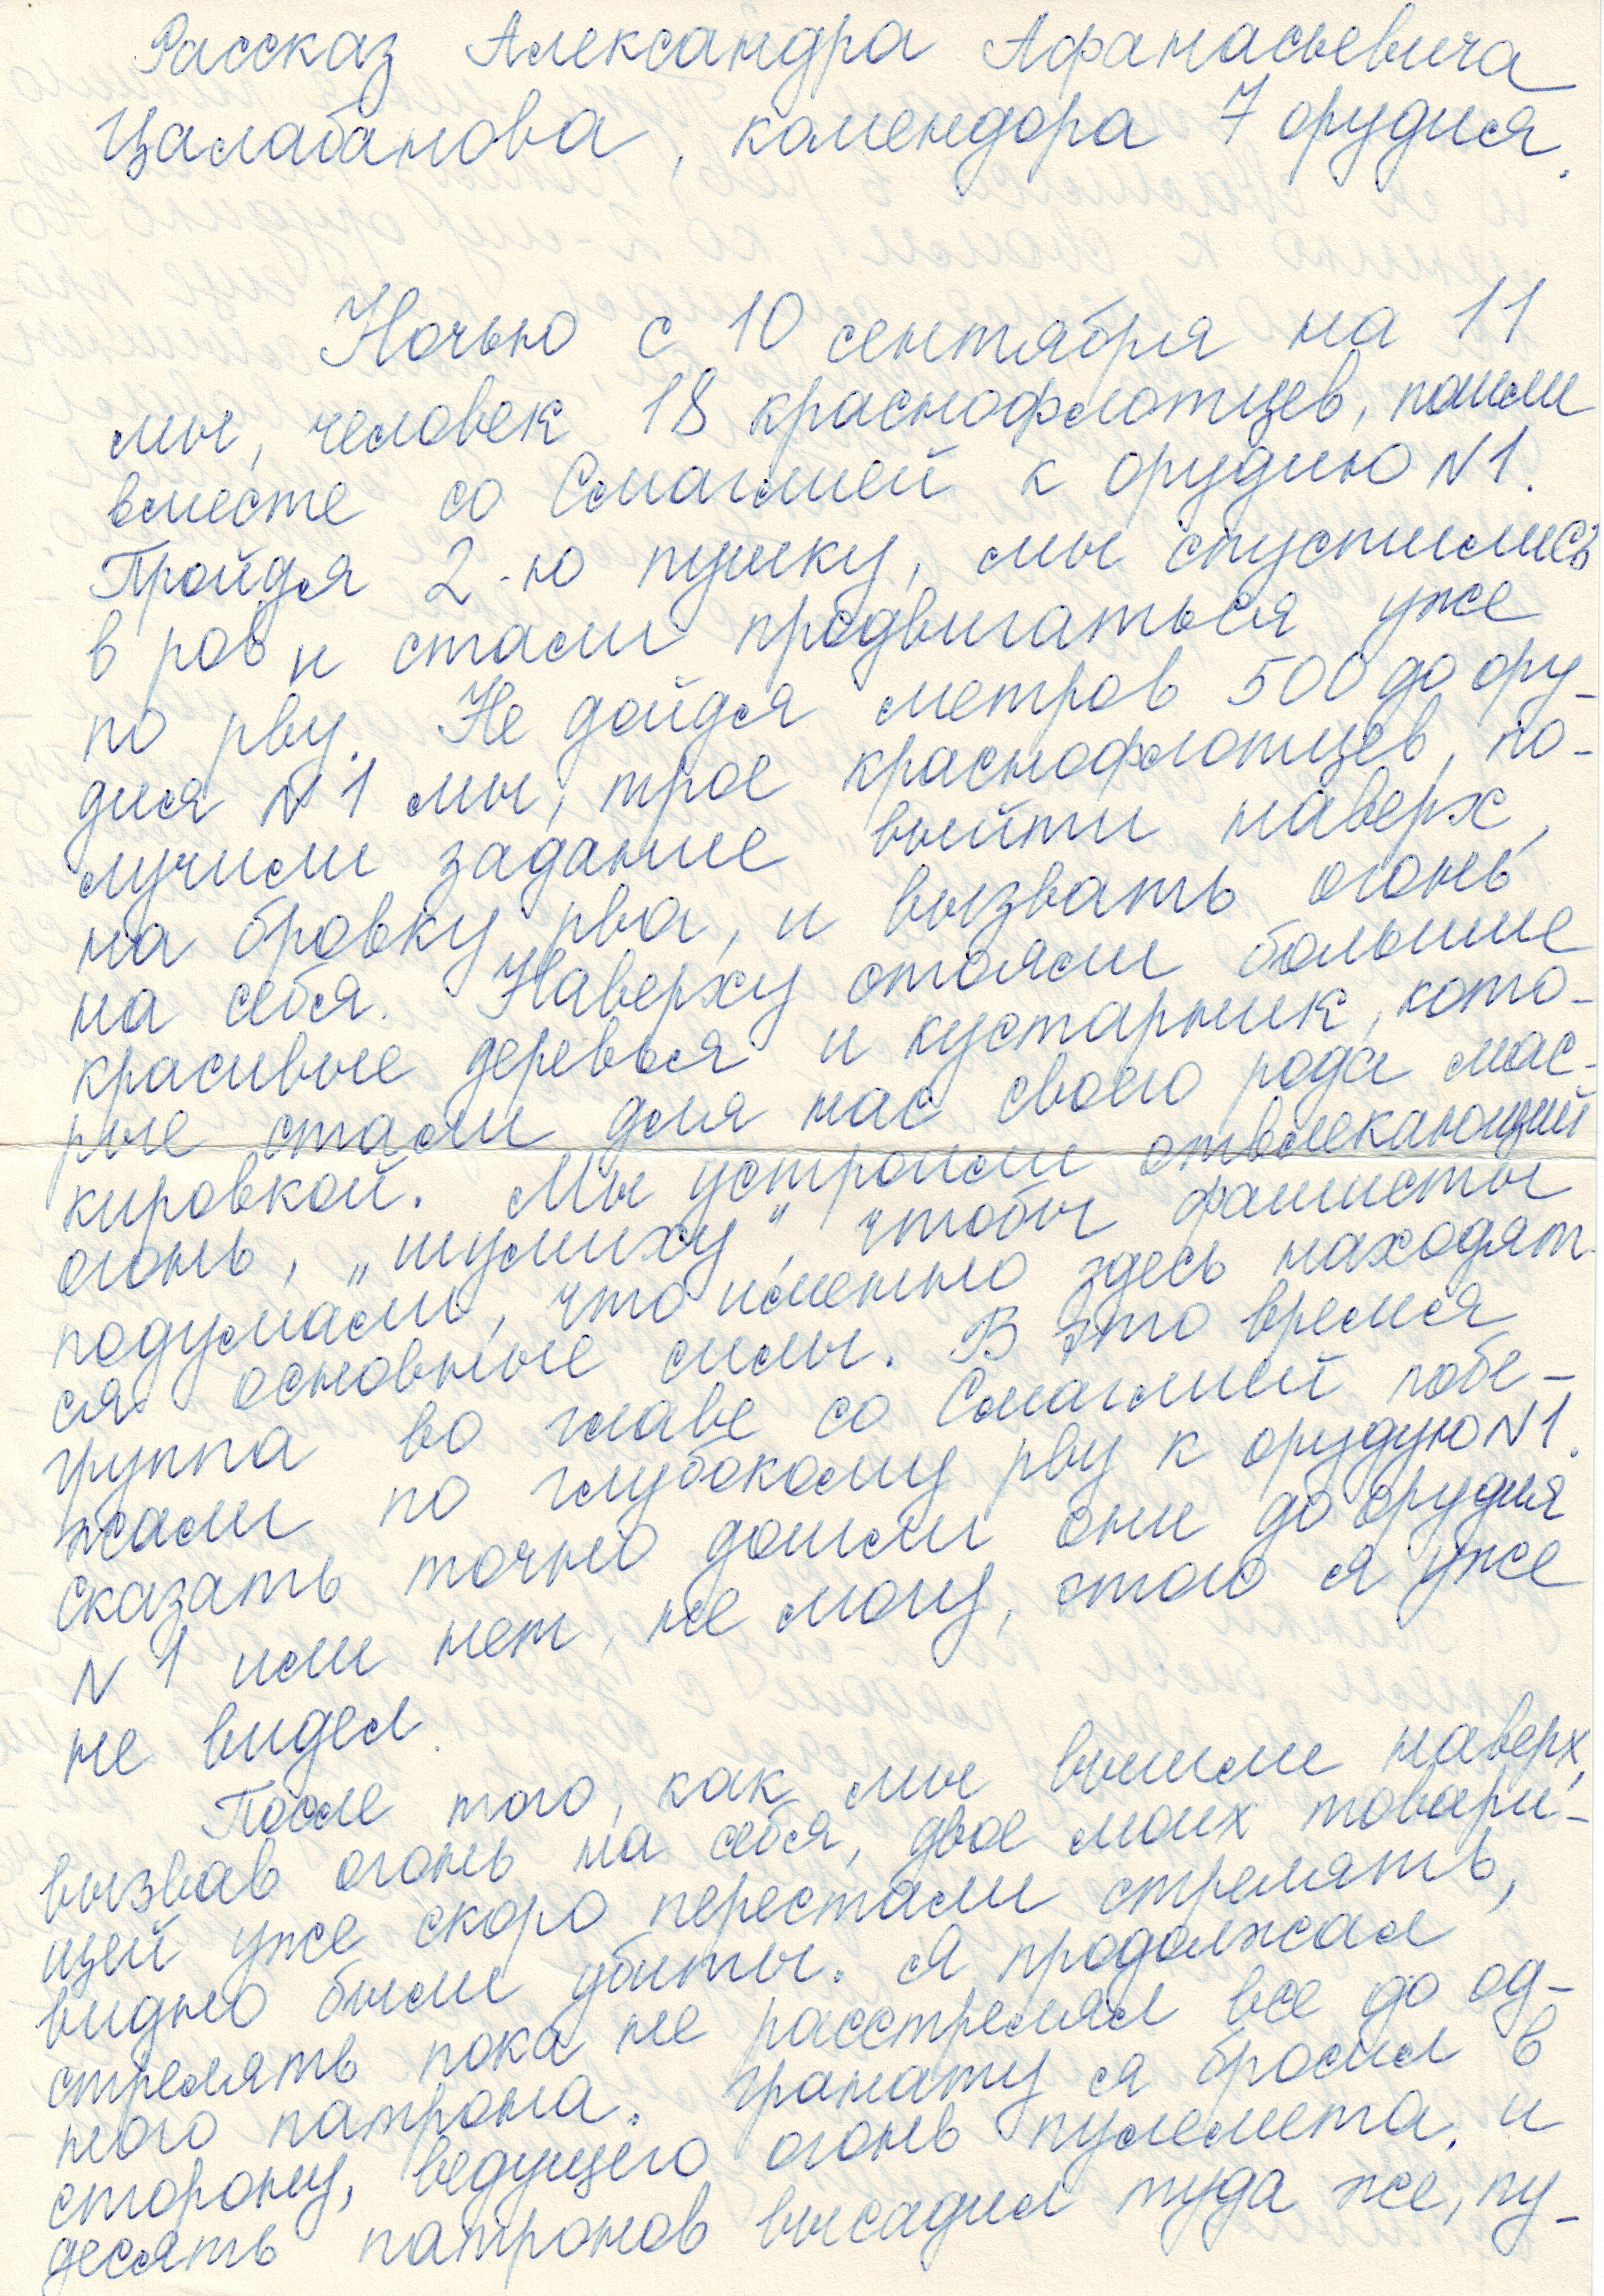 Рассказ Александра Афанасьевича
Цалабанова, комендора 7 орудия.
Ночью с 10 сентября на 11
мы, человек 18 краснофлотцев, пошли
вместе со Смаглией к орудию N1.
Пройдя 2-ю пушку, мы спустились
в ров и стали продвигаться уже
по рву. Не дойдя метров 500 до ору-
дия N1 мы, трое краснофлотцев, по-
лучили задание выйти наверх,
на бровку рва, и вызвать огонь
на себя. Наверху стояли большие
красивые деревья и кустарник, кото-
рые стали для нас своего рода мас-
кировкой. Мы устроили отвлекающий
огонь, „шумиху", чтобы фашисты
подумали, что именно здесь находят-
ся основные силы. В это время
группа во главе со Смаглией побе-
жали по глубокому рву к орудую N1.
сказать точно дошли они до орудия
N1 или нет, не могу, этого я уже
не видел.
После того, как мы вышли наверх,
вызвав огонь на себя, двое моих товари-
щей уже скоро перестали стрелять,
видно были убиты. Я продолжал
стрелять пока не расстрелял все до од-
ного патрона. Гранату я бросил в
сторону, ведущего огонь пулемета. и
десять патронов высадил туда же, пу-